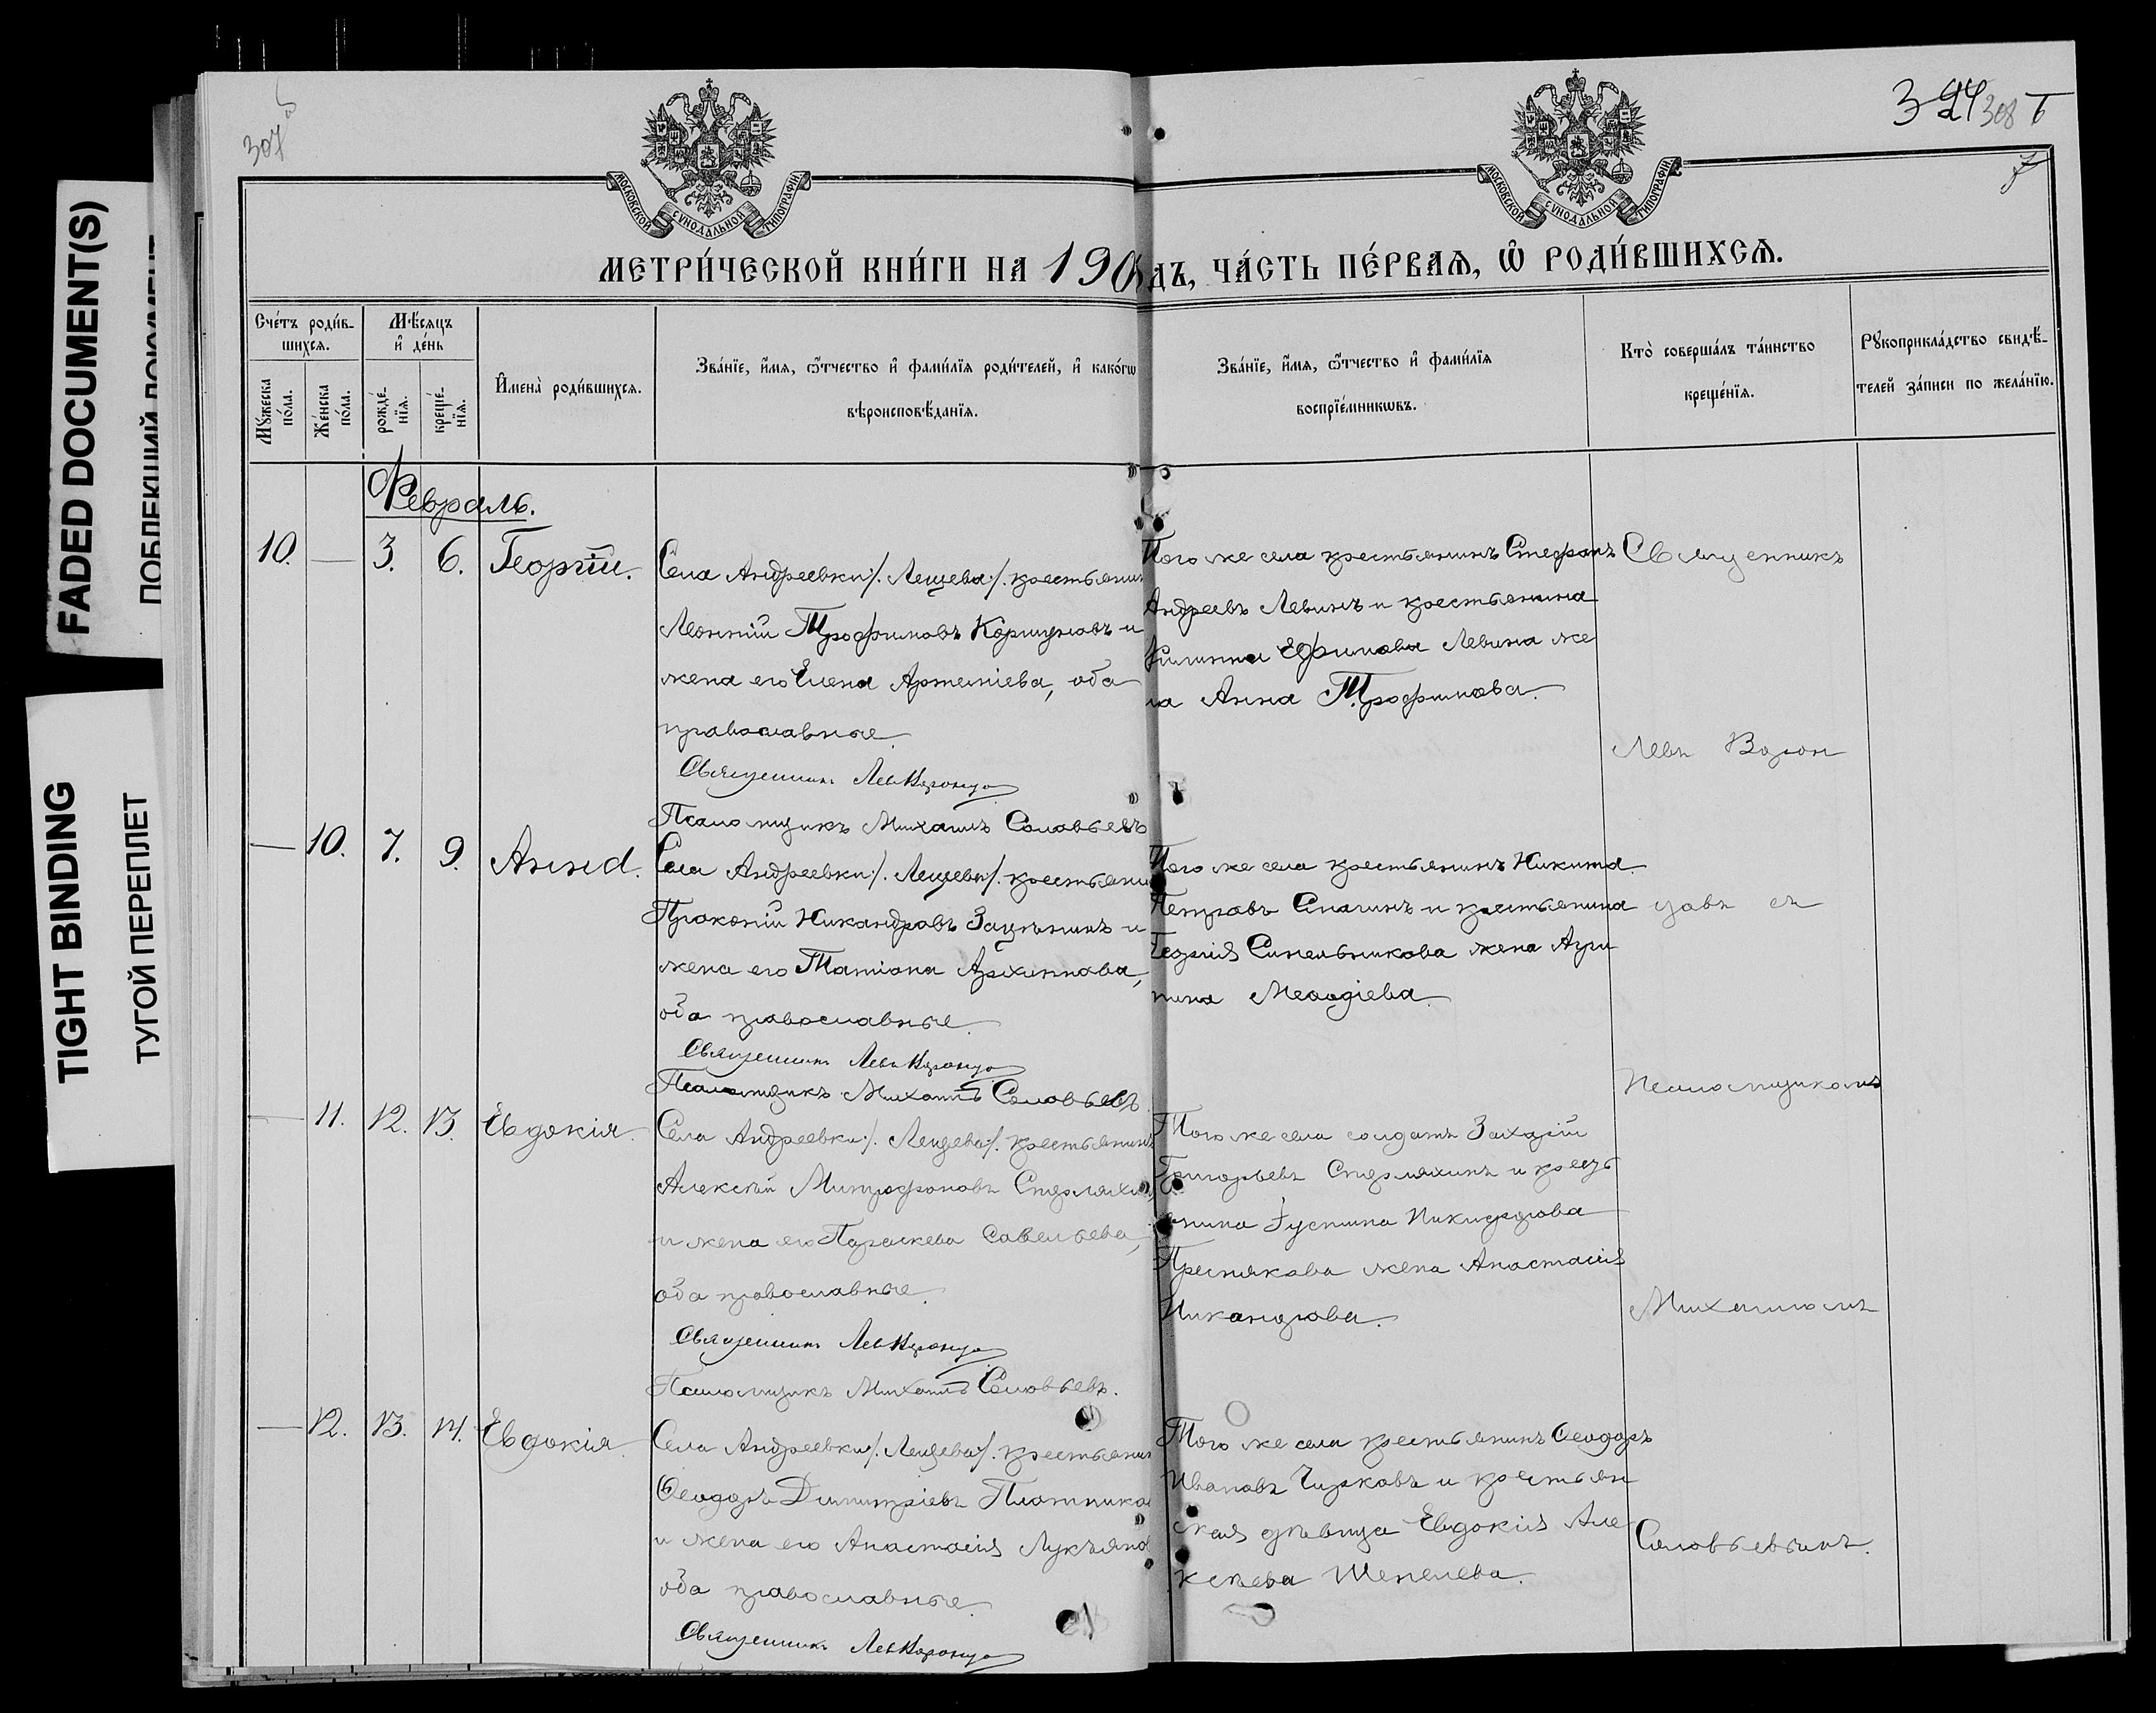 FADED DOCUMENT(S)
ПОБЛЕКШИЙ ДОКУМЕНТ
TIGHT BINDING
ТУГОЙ ПЕРЕПЛЕТ
307 об
324 308
7
МОСКОВСКОЙ СѴНОДАЛЬНОЙ ТИПОГРАФІИ
МОСКОВСКОЙ СѴНОДАЛЬНОЙ ТИПОГРАФІИ
МЕТРИ́ЧЕСКОЙ КНИ́ГИ НА 190 ДЪ, ЧА́СТЬ ПЕ́РВАѦ, Ѡ РОДИ́ВШИХСѦ.
Сче́тъ роди́в-
шихсѧ.
Мѣ́сѧцъ
и҆ де́нь
Мꙋ́жеска
по́ла.
Же́нска
по́ла.
рожде́-
нїѧ.
креще́-
нїѧ.
И҆мена̀ роди́вшихсѧ.
Зва́нїе, и҆́мѧ, ѻ҆́тчество и҆ фами́лїѧ роди́телей, и҆ како́гѡ
вѣроисповѣ́данїѧ.
Зва́нїе, и҆́мѧ, ѻ҆́тчество и҆ фами́лїѧ
воспрїе́мникѡвъ.
Кто̀ соверша́лъ та́инство
креще́нїѧ.
Рꙋкоприкла́дство свидѣ́-
телей за́писи по жела́нїю.
Февраль.
10. — 3. 6. Георгій.
Села Андреевки /. Лещева /. крестьянин
Леонтій Трофимовъ Коршуновъ и
жена его Елена Артеміева, оба
православные.
Священникъ Левъ Воронцо
Псаломщикъ Михаилъ Соловьевъ
Того же села крестьянинъ Стефанъ
Андреевъ Левинъ и крестьянина
Филиппа Ефимова Левина же
на Анна Трофимова.
— 10. 7. 9. Анна.
Села Андреевки /. Лещева /. крестьяни
Прокопій Никандровъ Зацѣпинъ и
жена его Татіана Архиппова,
оба православные.
Священникъ Левъ Воронцо
Псаломщикъ Михаилъ Соловьевъ
Того же села крестьянинъ Никита
Петровъ Спагинъ и крестьянина
Георгія Синельникова жена Агри
пина Меѳодіева.
— 11. 12. 13. Евдокія.
Села Андреевки /. Лещева /. крестьянинъ
Алексѣй Митрофановъ Стерляхи
и жена его Параскева Савельева,
оба православные.
Священникъ Левъ Воронцо
Псаломщикъ Михаилъ Соловьевъ.
Того же села солдатъ Захарій
Григорьевъ Стерляхинъ и кресть
янина Іустина Никифорова
Преснякова жена Анастасія
Никандрова.
— 12. 13. 14. Евдокія.
Села Андреевки /. Лещева /. крестьянин
Ѳеодоръ Димитріевъ Плотнико
и жена его Анастасія Лукъяно
оба православные.
Священникъ Левъ Воронцо
Того же села крестьянинъ Ѳеодоръ
Ивановъ Чирковъ и крестьян
ская дѣвица Евдокія Але
ксѣева Шепелева.
Священникъ
Левъ Ворон
цовъ съ
Псаломщикомъ
Михаиломъ
Соловьевымъ.